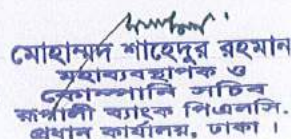 মোহাম্মদ শাহেদুর রহমান
মহাব্যবস্থাপক ও
কোম্পানি সচিব
রূপালী ব্যাংক পিএলসি.
প্রধান কার্যালয়, ঢাকা ।